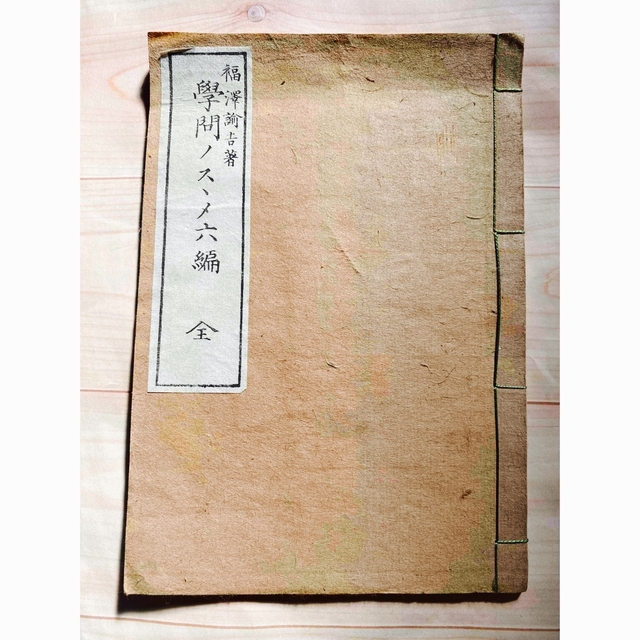 福澤諭吉著
學問ノスヽメ六編 全